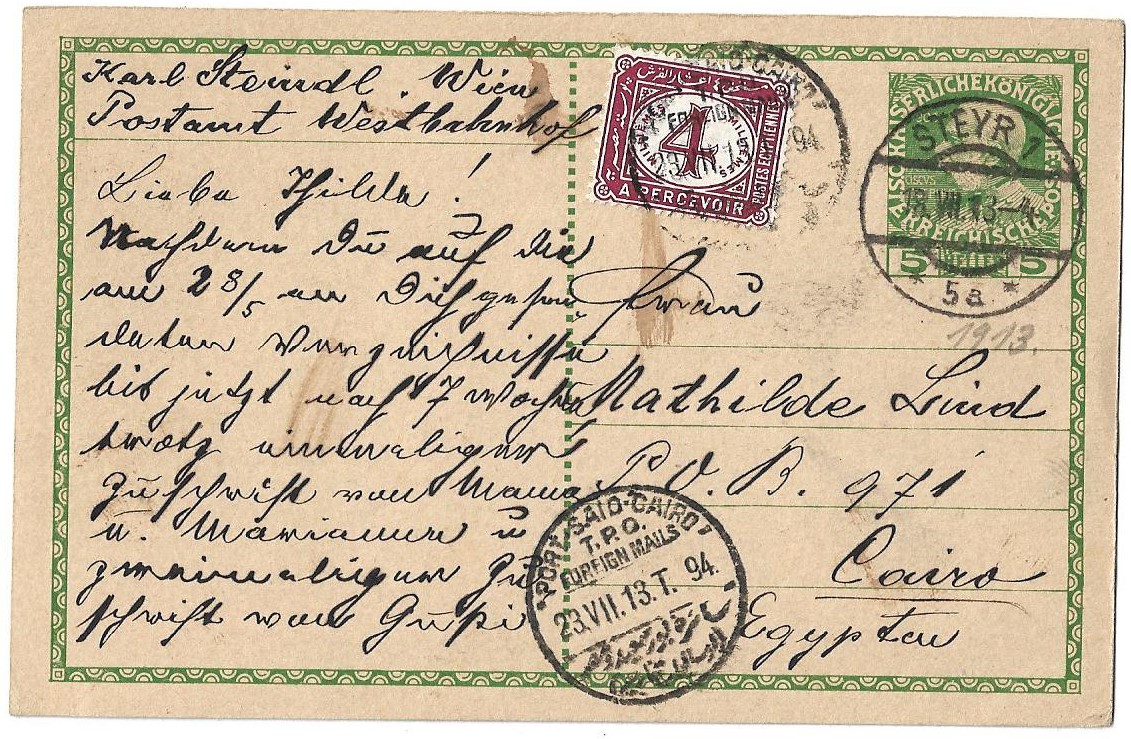 Karl Steindl. Wien
Postamt Westbahnhof
Liebe Thilda!
Nachdem Du auf die
am 28/5 an Dich gesen-
deten Vorgnisse
bis jetzt nach 7 Wochen
trotz einmaliger
Zuschrift von Mama
u. Marianne u.
zweimaliger Zu
schrift von Gusti
Frau
Mathilde Lind
P. O. B. 971
Cairo
Egypten
1913.
4
MILLIEMES
A PERCEVOIR
POSTES EGYPTIENNES
KAISERLICHEKÖNIGLICHE
ÖSTERREICHISCHE POST
5 HELLER 5
STEYR 1
18.VII.13-4
* 5a *
"PORT-SAID-CAIRO"
T.P.O.
FOREIGN MAILS
23.VII.13.T. 94.